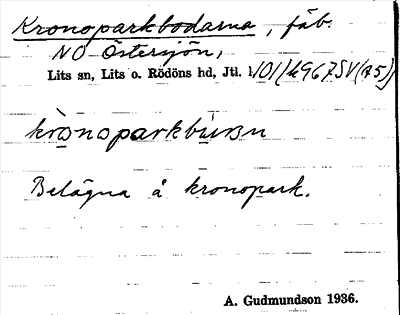 Kronoparkbodarna, fäb.
NO Östersjön,
Lits sn, Lits o. Rödöns hd, Jtl.
krònoparkbùrsn
Belägna å kronopark.
A. Gudmundson 1936.